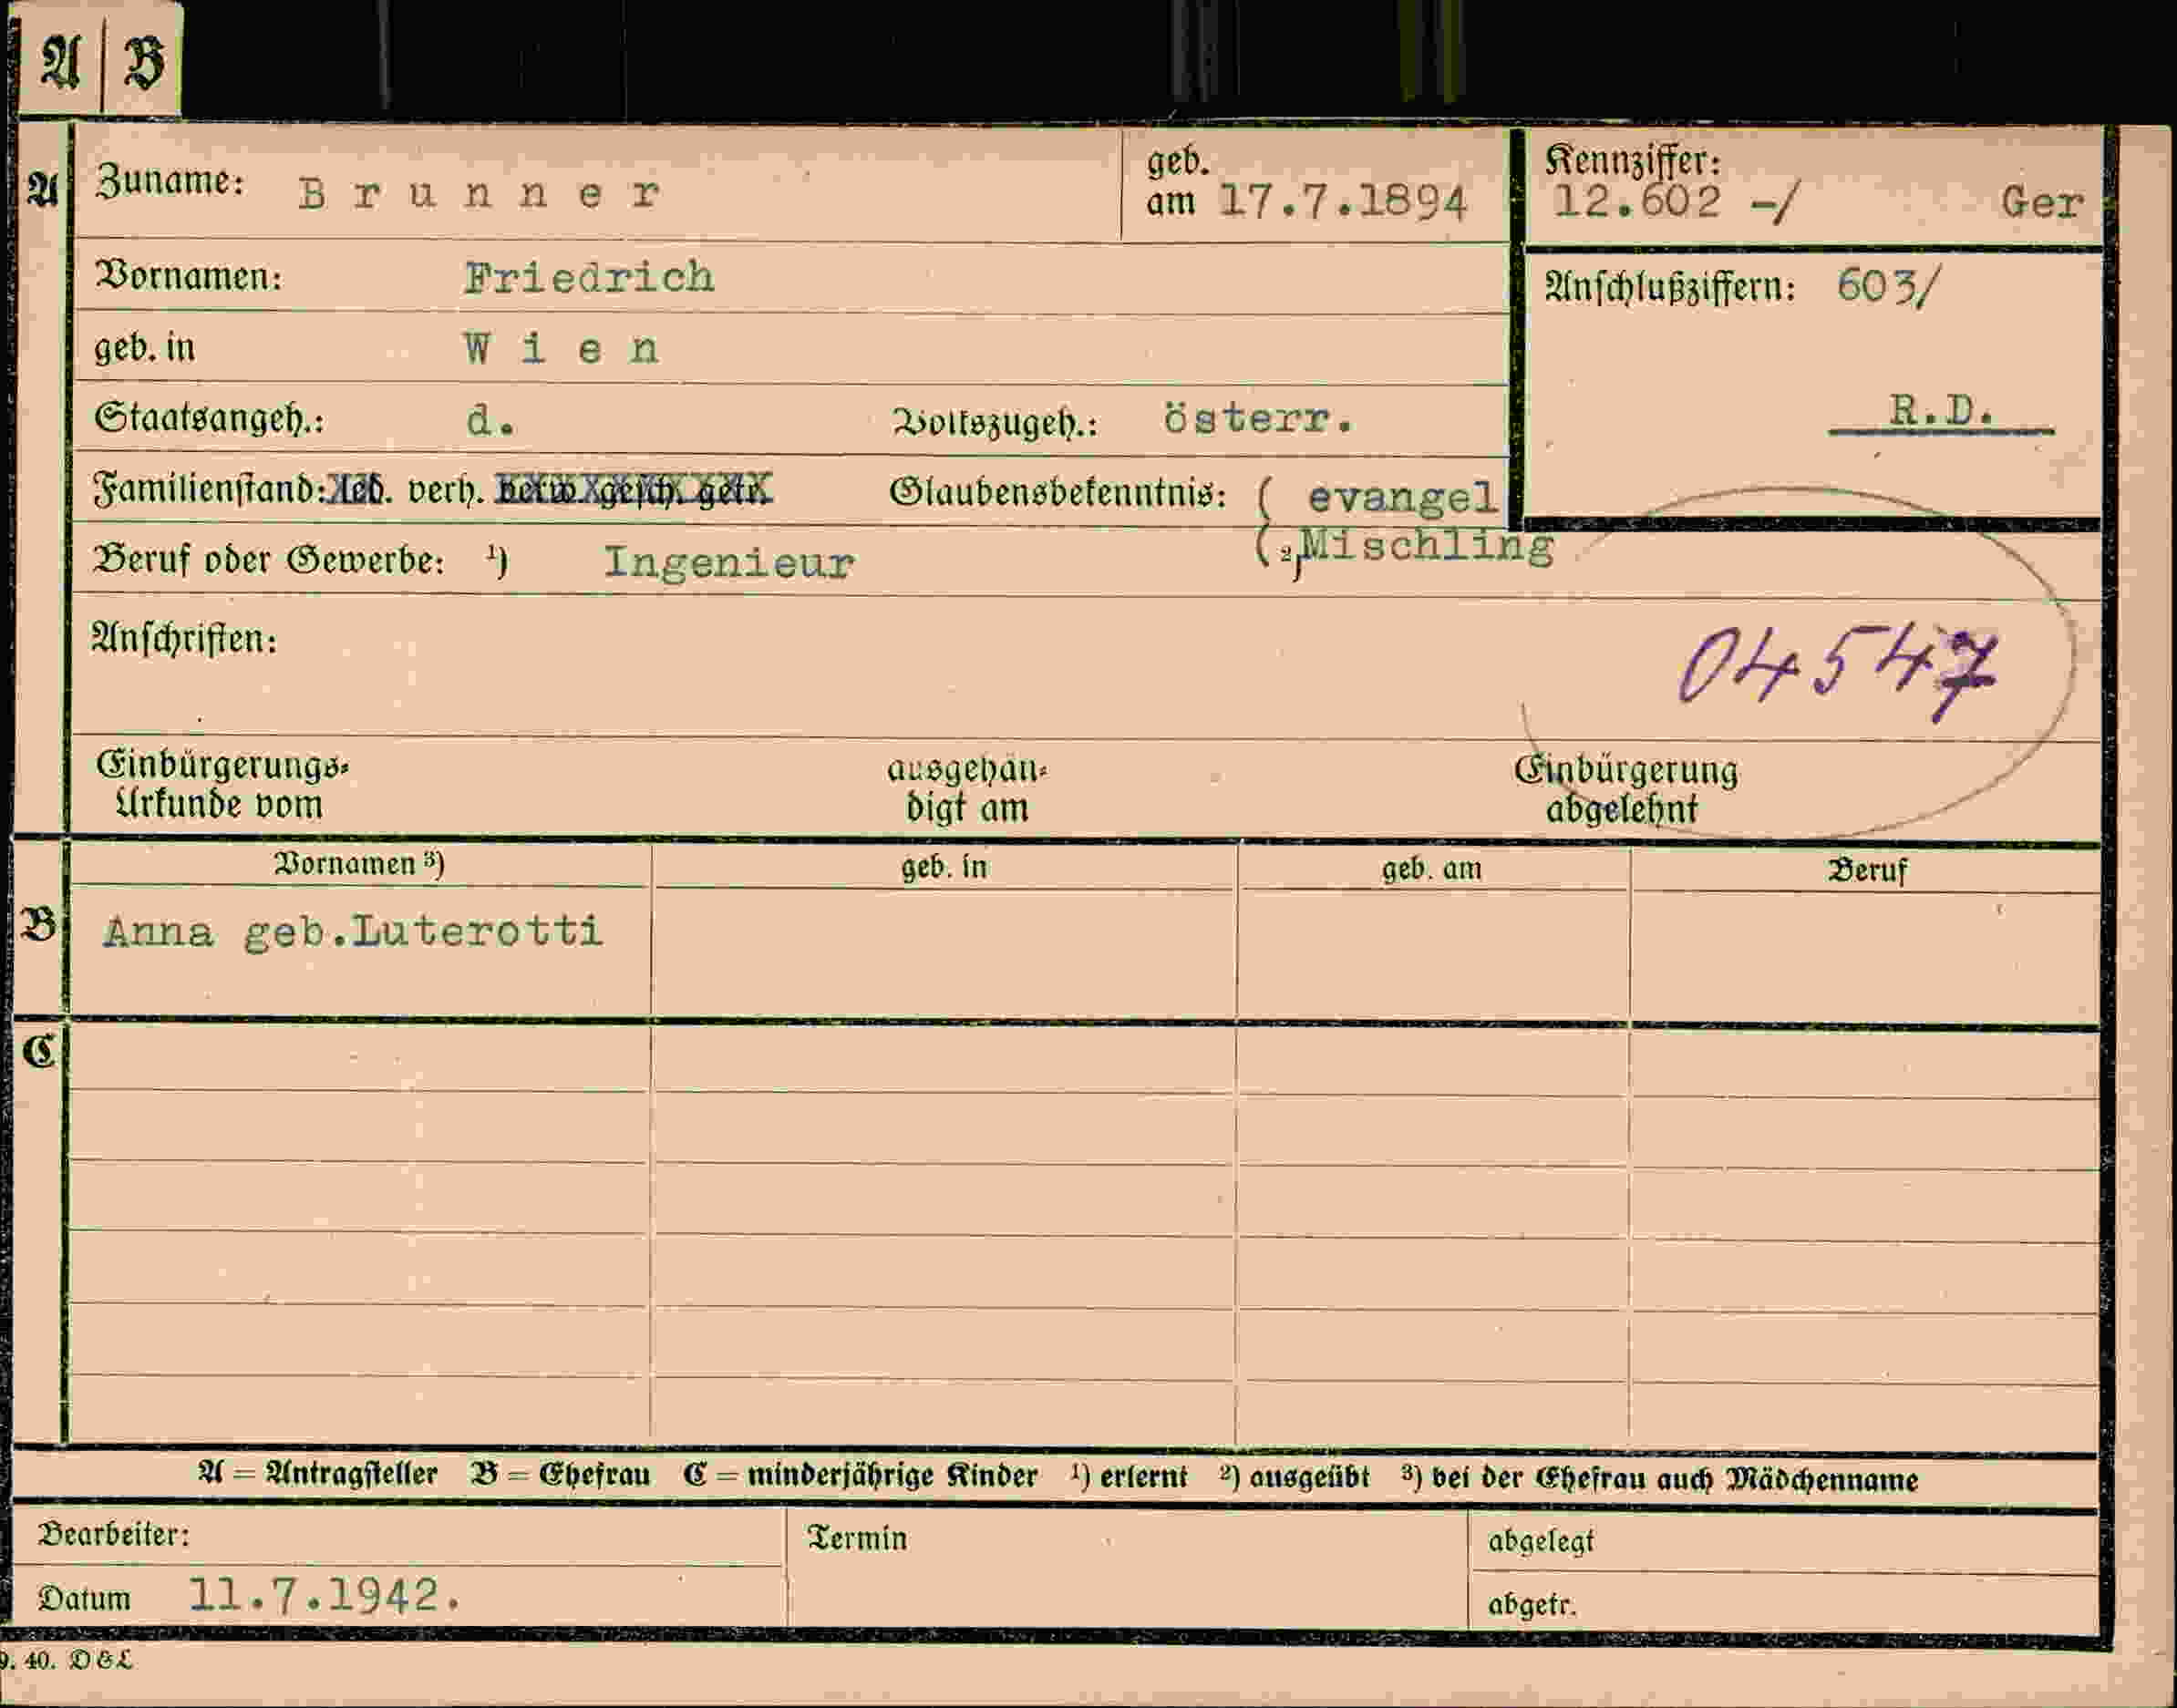 A B
A Zuname: Brunner geb. am 17.7.1894 Kennziffer: 12.602 -/ Ger
Vornamen: Friedrich Anschlußziffern: 603/
geb. in Wien
Staatsangeh.: d. Volkszugeh.: österr. R.D.
Familienstand: led. verh. verw. gesch. getr. Glaubensbekenntnis: ( evangel
Beruf oder Gewerbe: ¹) Ingenieur ( ²) Mischling
Anschriften: 04547
Einbürgerungs- ausgehän- Einbürgerung
Urkunde vom digt am abgelehnt
Vornamen ³) geb. in geb. am Beruf
B Anna geb.Luterotti
C
A = Antragsteller B = Ehefrau C = minderjährige Kinder ¹) erlernt ²) ausgeübt ³) bei der Ehefrau auch Mädchenname
Bearbeiter: Termin abgelegt
Datum 11.7.1942. abgetr.
9. 40. D&L